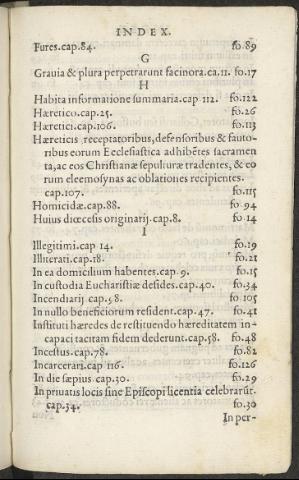 INDEX.
Fures.cap.84. fo.89
G
Grauia & plura perpetrarunt facinora.ca.11. fo.17
H
Habita informatione summaria.cap 112. fo.122
Hæretico.cap.25. fo.26
Hæretici.cap.106. fo.113
Hæreticis receptatoribus, defensoribus & fauto-
ribus eorum Ecclesiastica adhibẽtes sacramen
ta, ac eos Christianæ sepulturæ tradentes, & eo
rum eleemosynas ac oblationes recipientes.
cap.107. fo.115
Homicidæ.cap.88. fo 94
Huius diœcesis originarij.cap.8. fo 14
I
Illegitimi.cap 14. fo.19
Illiterati.cap.18. fo.21
In ea domicilium habentes.cap.9. fo.15
In custodia Eucharistiæ desides.cap.40. fo.34
Incendiarij.cap.98. fo 105
In nullo beneficiorum resident.cap.47. fo.41
Instituti hæredes de restituendo hæreditatem in-
capaci tacitam fidem dederunt.cap.58. fo.48
Incestus.cap.78. fo.82
Incarcerari.cap 116. fo.126
In die sæpius cap.30. fo.29
In priuatis locis sine Episcopi licentia celebrarũt.
cap.34. fo.30
In per-